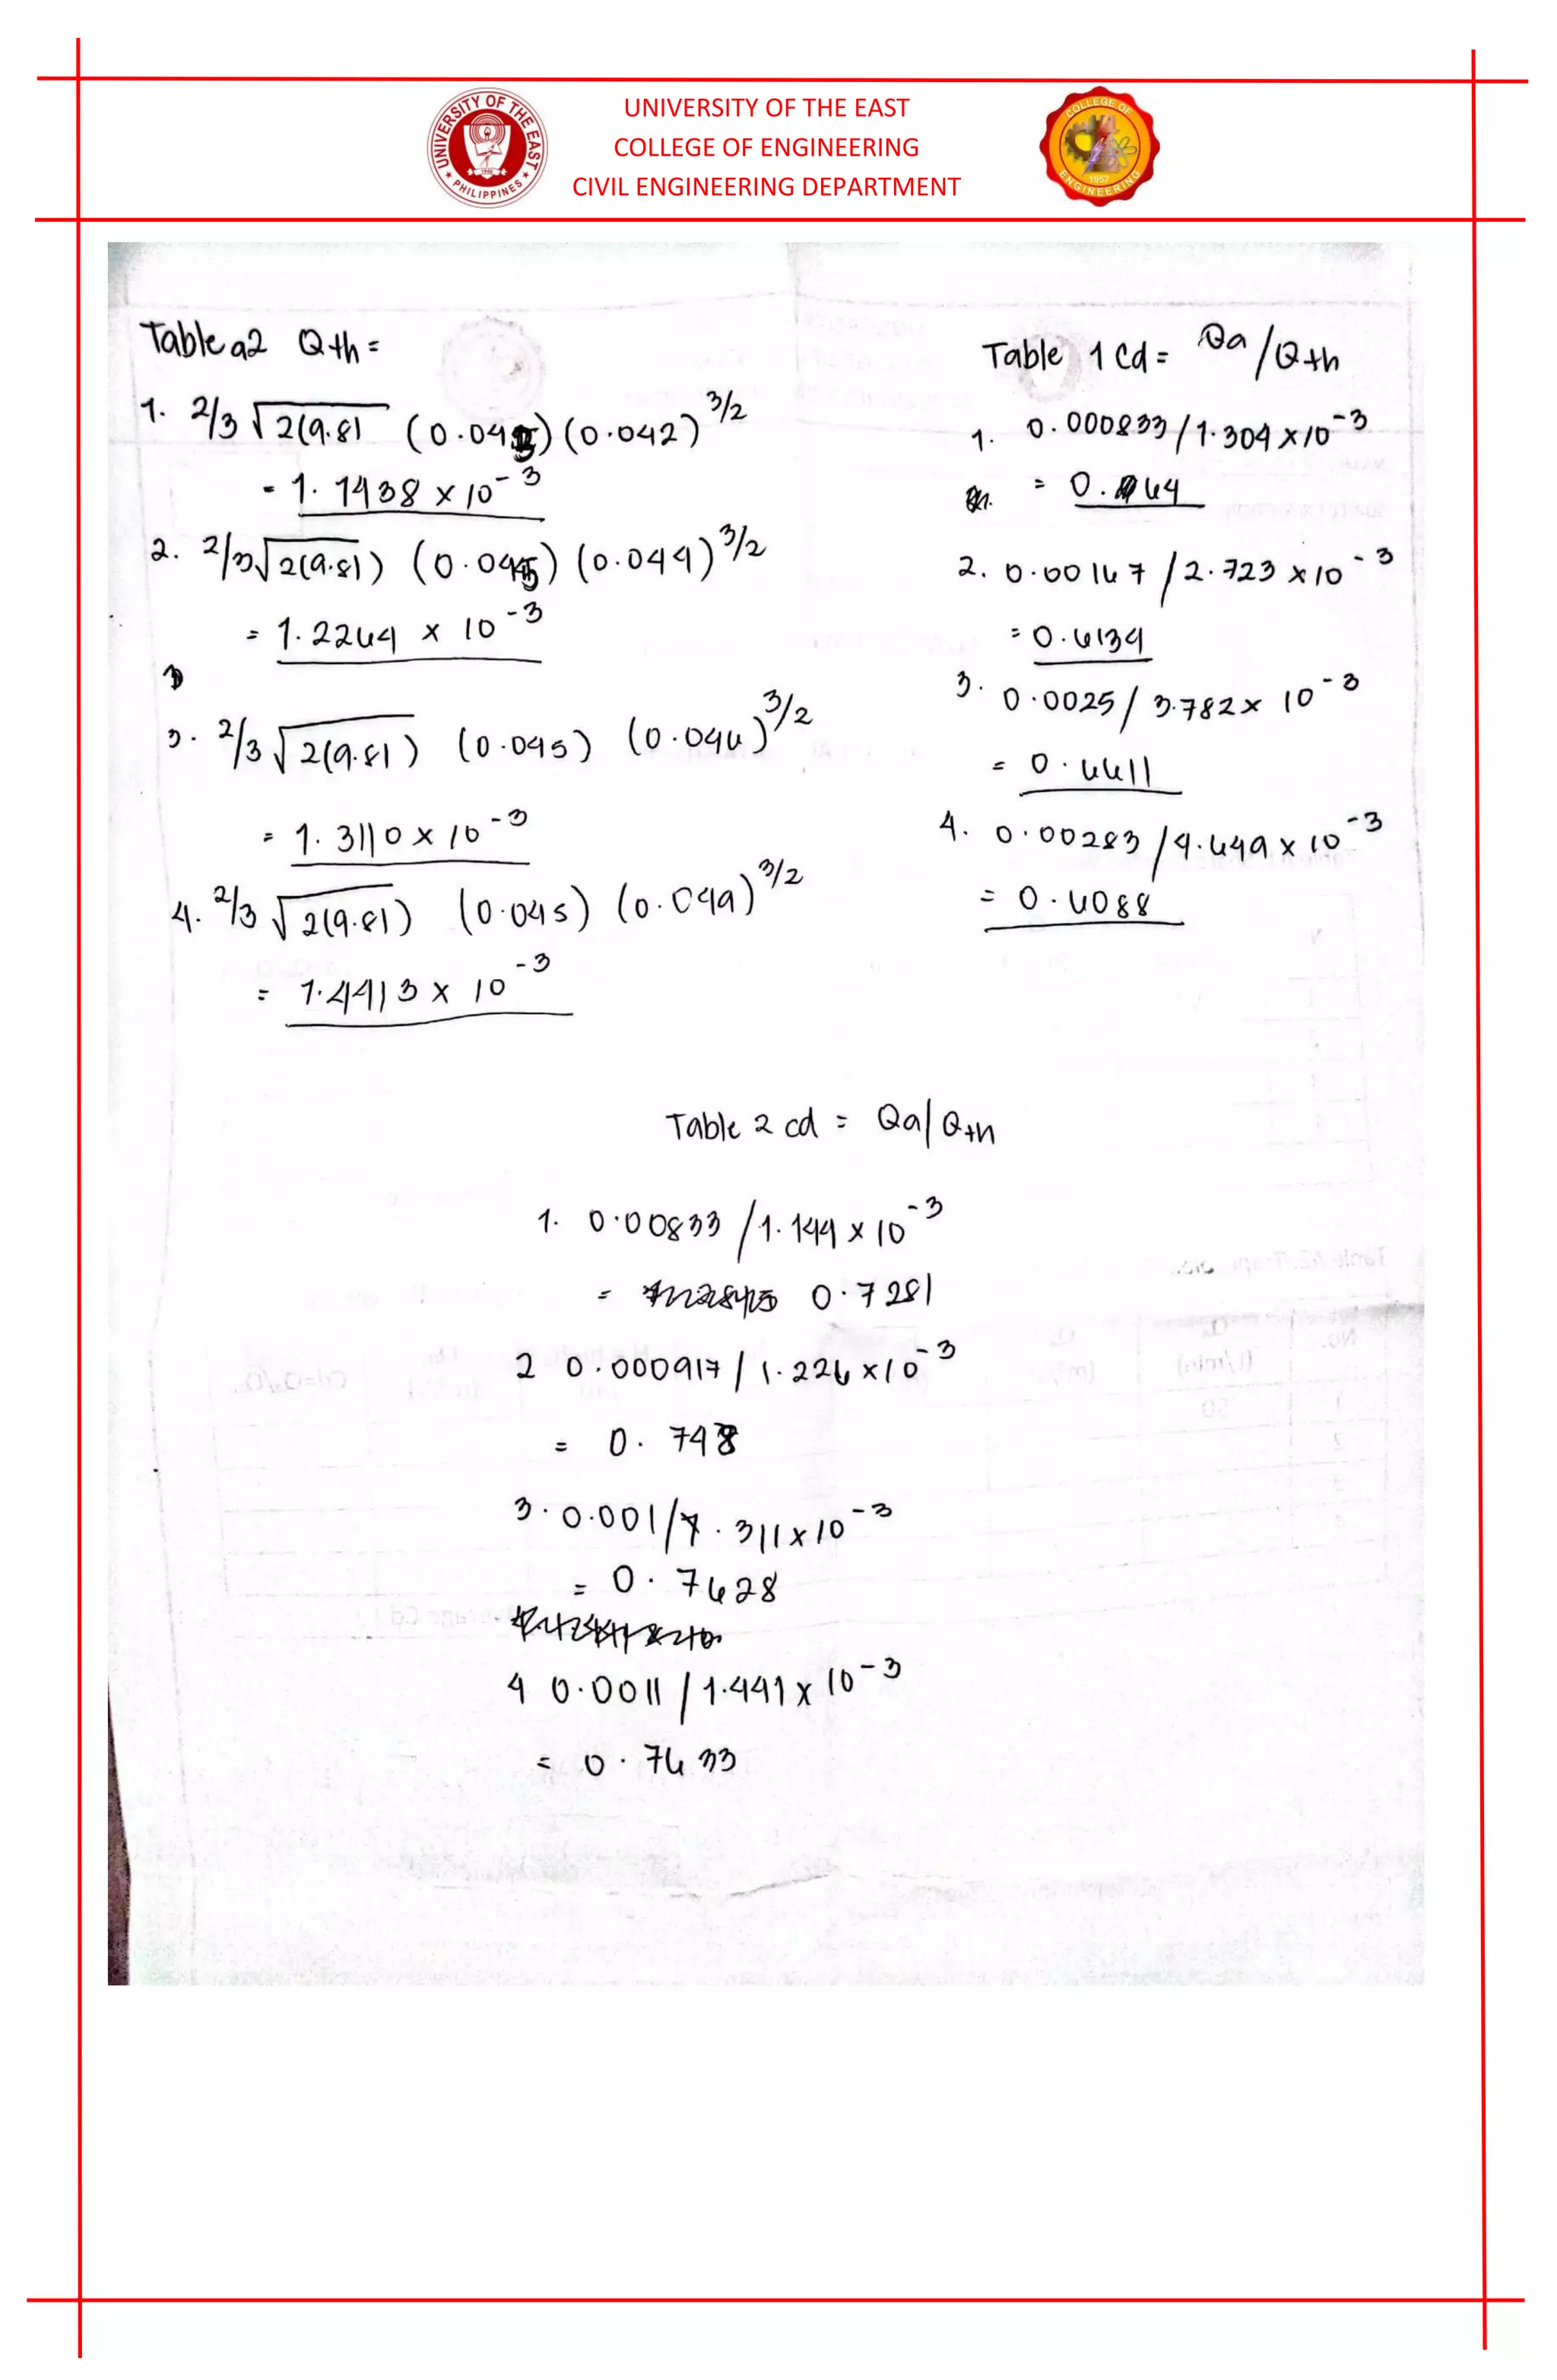 UNIVERSITY OF THE EAST
COLLEGE OF ENGINEERING
CIVIL ENGINEERING DEPARTMENT
UNIVERSITY OF THE EAST
PHILIPPINES
COLLEGE OF
ENGINEERING
1957
Table a2 Qth =
1. 2/3 √2(9.81 (0.045)(0.042)^3/2
= 1.1438 x 10^-3
2. 2/3√2(9.81) (0.045)(0.044)^3/2
= 1.2264 x 10^-3
3. 2/3√2(9.81) (0.045) (0.046)^3/2
= 1.3110 x 10^-3
4. 2/3√2(9.81) (0.045) (0.049)^3/2
= 1.4413 x 10^-3
Table 1 Cd = Qa/Qth
1. 0.000833/1.304 x 10^-3
= 0.64
2. 0.00167/2.723 x 10^-3
= 0.6134
3. 0.0025/3.782 x 10^-3
= 0.6611
4. 0.00283/4.649 x 10^-3
= 0.6088
Table 2 cd = Qa/Qth
1. 0.00833/1.144 x 10^-3
= 0.7281
2 0.000917/1.226 x 10^-3
= 0.748
3. 0.001/1.311 x 10^-3
= 0.7628
4 0.0011/1.441 x 10^-3
= 0.7633